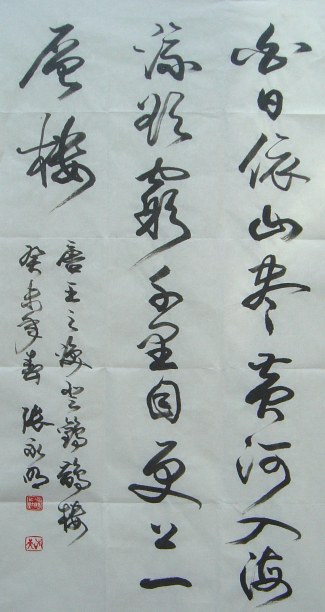 白日依山尽黄河入海
流欲穷千里目更上一
层楼
唐王之涣登鹳鹊楼
癸未年春 张永明